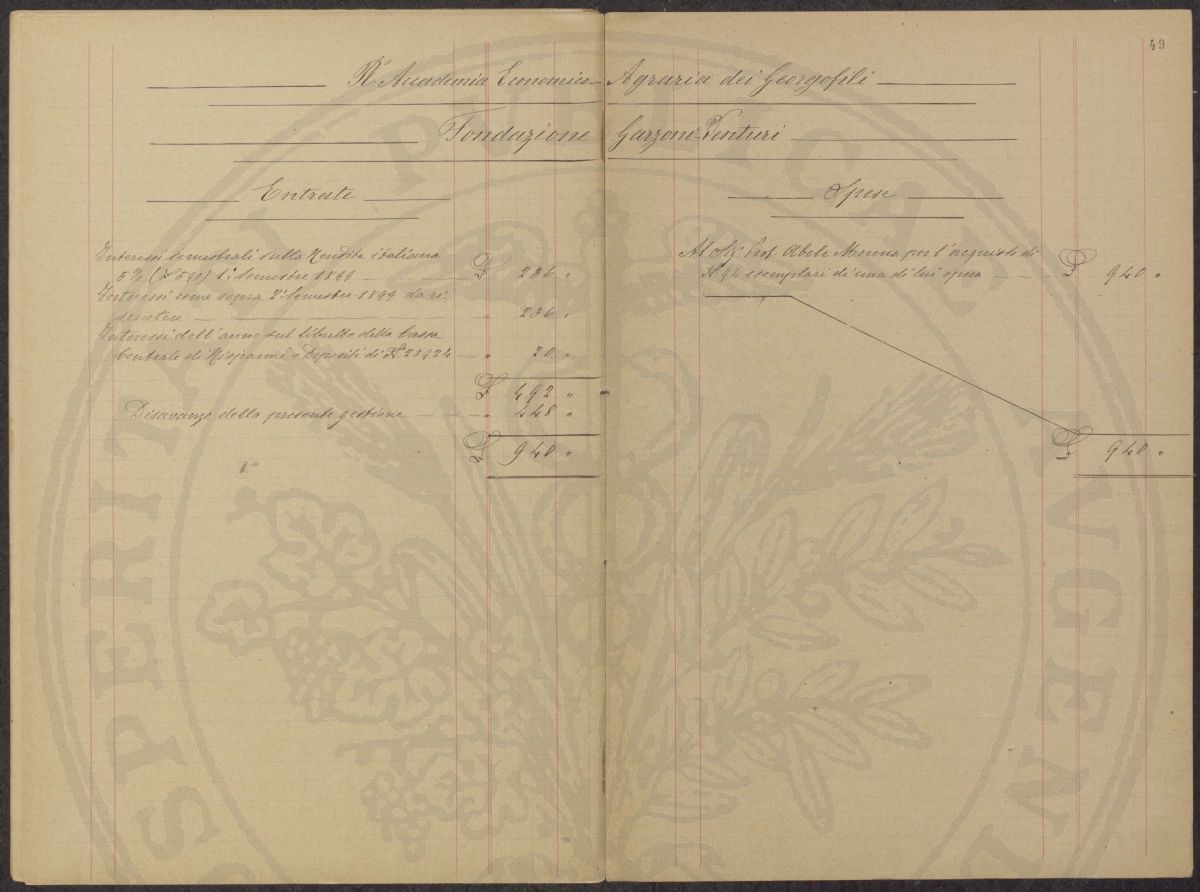 49
R. Accademia Economico-Agraria dei Georgofili
Fondazione Garzoni-Venturi
Entrate
Interessi semestrali sulla Rendita italiana
5% (£ 590) 1º Semestre 1899 £ 236 "
Interessi come sopra 2º Semestre 1899 da ri-
scuotere " 236 "
Interessi dell'anno sul libretto della Cassa
Centrale di Risparmi e Depositi di Nº 23924 " 20 "
£ 492 "
Disavanzo della presente gestione " 448 "
£ 940 "
Spese
Al Sigr. Prof. Abele Morena per l'acquisto di
Nº 94 esemplari di una di lui opera £ 940 "
£ 940 "
PROSPERITATI PUBLICAE AUGENDAE